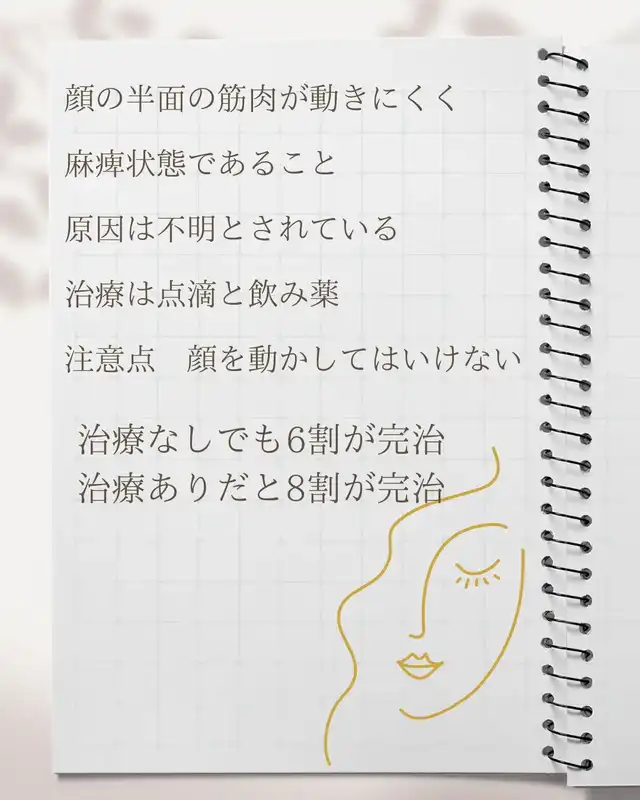 顔の半面の筋肉が動きにくく
麻痺状態であること
原因は不明とされている
治療は点滴と飲み薬
注意点　顔を動かしてはいけない
治療なしでも6割が完治
治療ありだと8割が完治